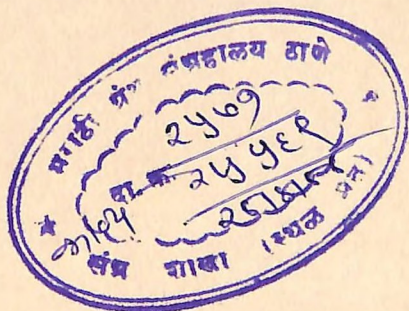 मराठी ग्रंथ संग्रहालय ठाणे
२५७१
दा. क्र.
२५५६९
संग्रह शाखा (स्थळ प्रत)